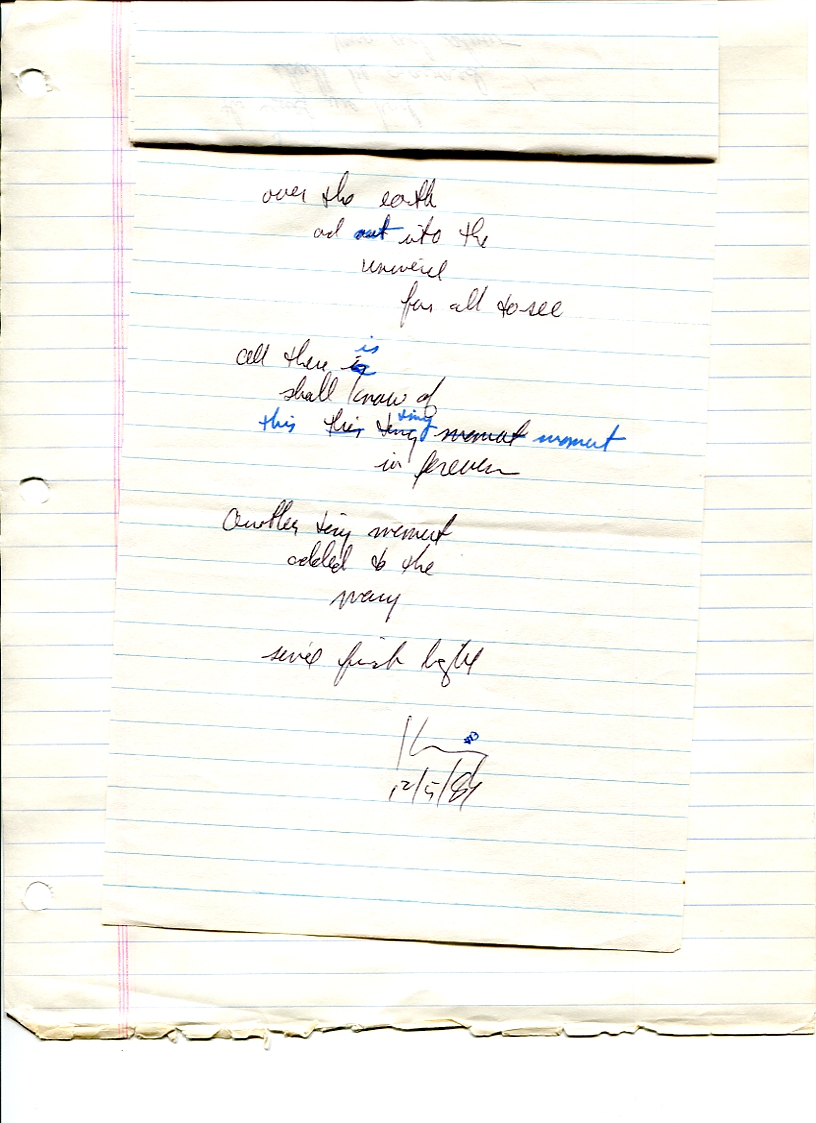 over the earth
and out into the
universe
for all to see
is
all there is
shall know of
tiny
this this tiny moment moment
in forever
Another tiny moment
added to the
many
since first light
12/5/84